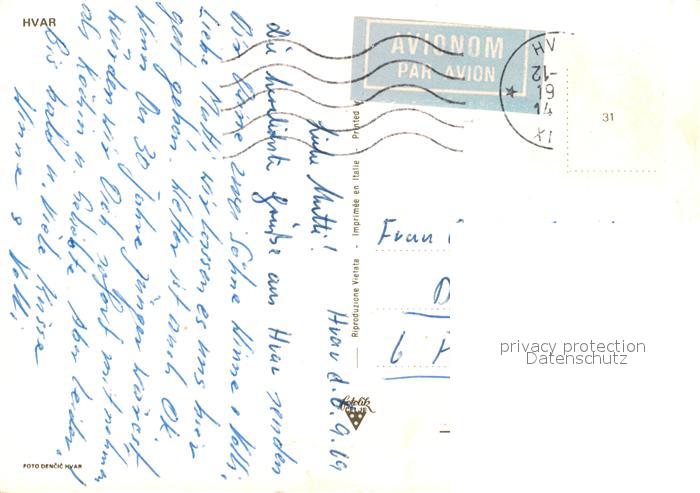 HVAR
AVIONOM
PAR AVION
HV
-12
61
71
IX
31
Hvar d. 8.9.69
Liebe Mutti!
Die herzlichsten Grüße aus Hvar senden
Dir Deine zwei Söhne Hinne u. Kalli.
Liebe Mutti wir lassen es uns hier
gut gehen. Wetter ist auch OK.
Wenn Du 30 Jahre jünger wärest
würden wir Dich sofort mitnehmen
als Köchin u. Geliebte. Aber leider!
Bis bald u. viele Küsse
Hinne & Kalli
Frau
D
6
Riproduzione Vietata - Imprimée en Italie - Printed
fotolik
CELJE
FOTO DENČIĆ HVAR
privacy protection
Datenschutz